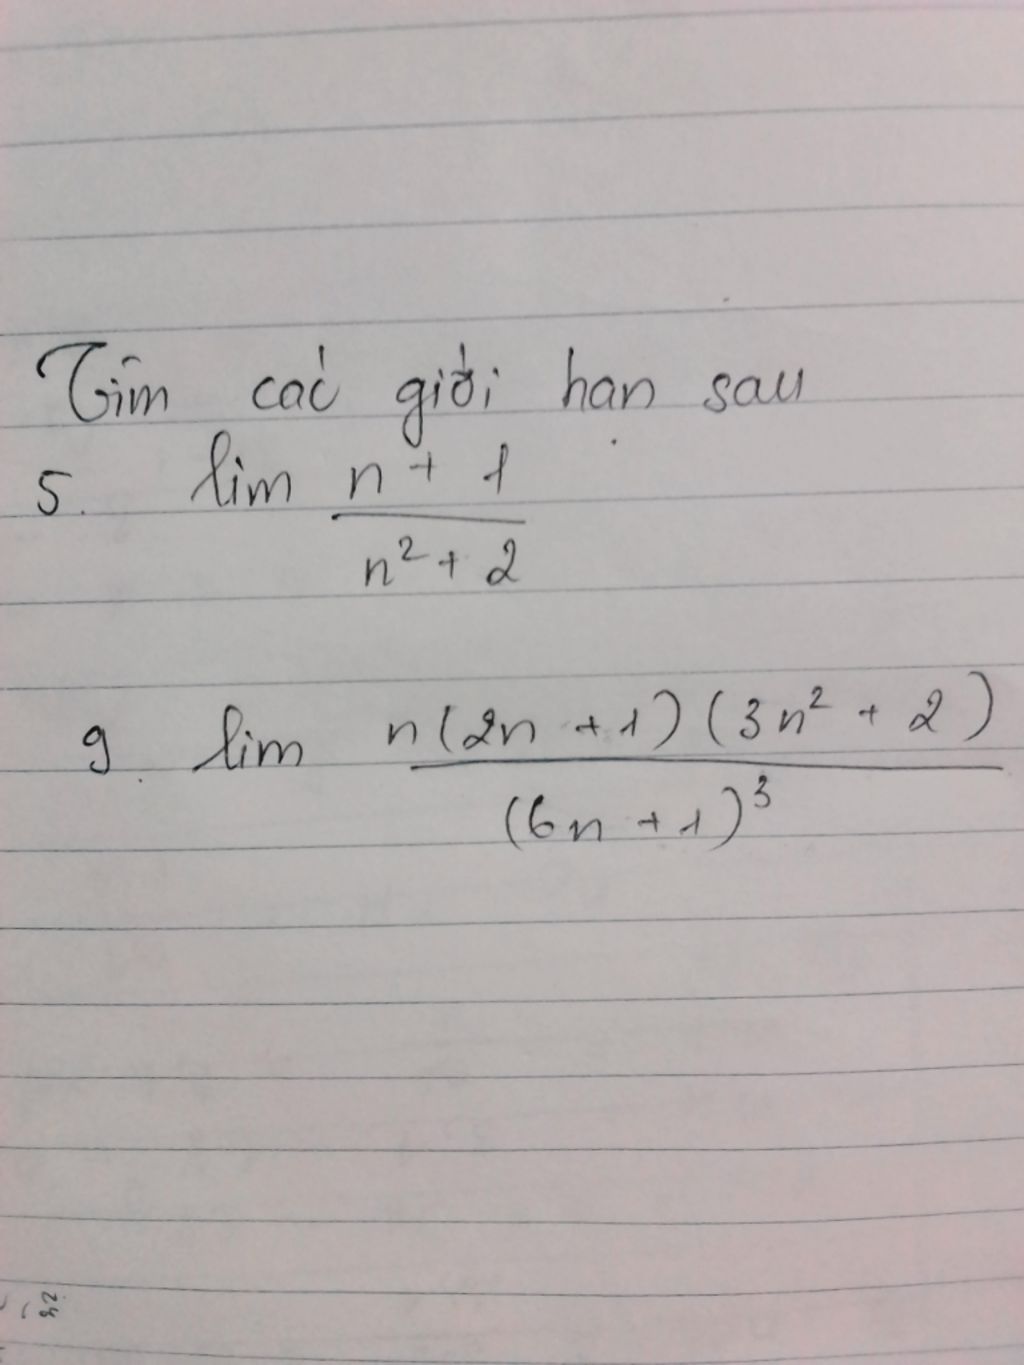 Tìm các giới hạn sau
5. lim (n + 1)/(n² + 2)
9. lim n(2n + 1)(3n² + 2)/(6n + 1)³